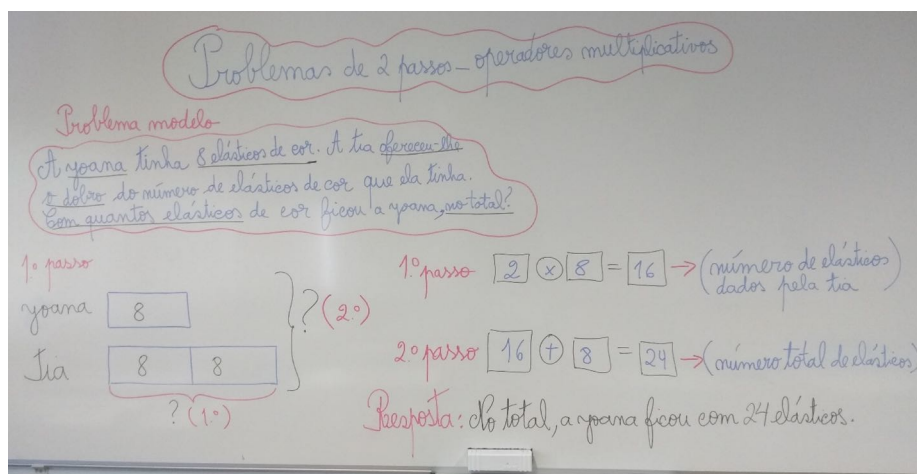 Problemas de 2 passos - operadores multiplicativos
Problema modelo
A yoana tinha 8 elásticos de cor. A tia ofereceu-lhe
o dobro do número de elásticos de cor que ela tinha.
Com quantos elásticos de cor ficou a yoana, no total?
1.º passo
yoana 8
Tia 8 8
? (1.º)
? (2.º)
1.º passo 2 x 8 = 16 → (número de elásticos dados pela tia)
2.º passo 16 + 8 = 24 → (número total de elásticos)
Resposta: No total, a yoana ficou com 24 elásticos.